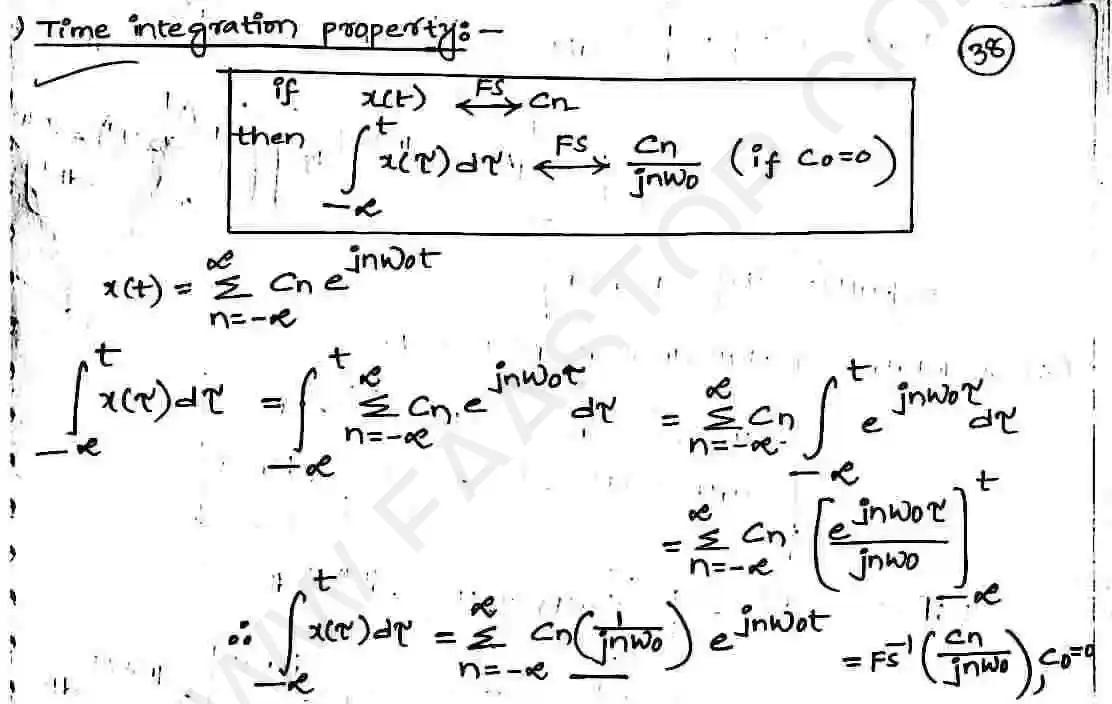 ) Time integration property:-
38
if x(t) <-FS-> Cn
then ∫_{-∞}^{t} x(τ) dτ <-FS-> Cn/(jnω0) (if C0=0)
x(t) = Σ_{n=-∞}^{∞} Cn e^{jnω0t}
∫_{-∞}^{t} x(τ)dτ = ∫_{-∞}^{t} Σ_{n=-∞}^{∞} Cn.e^{jnω0τ} dτ = Σ_{n=-∞}^{∞} Cn ∫_{-∞}^{t} e^{jnω0τ} dτ
= Σ_{n=-∞}^{∞} Cn [e^{jnω0τ}/(jnω0)]_{-∞}^{t}
∴ ∫_{-∞}^{t} x(τ)dτ = Σ_{n=-∞}^{∞} Cn(1/(jnω0)) e^{jnω0t} = FS^{-1}(Cn/(jnω0)), C0=0